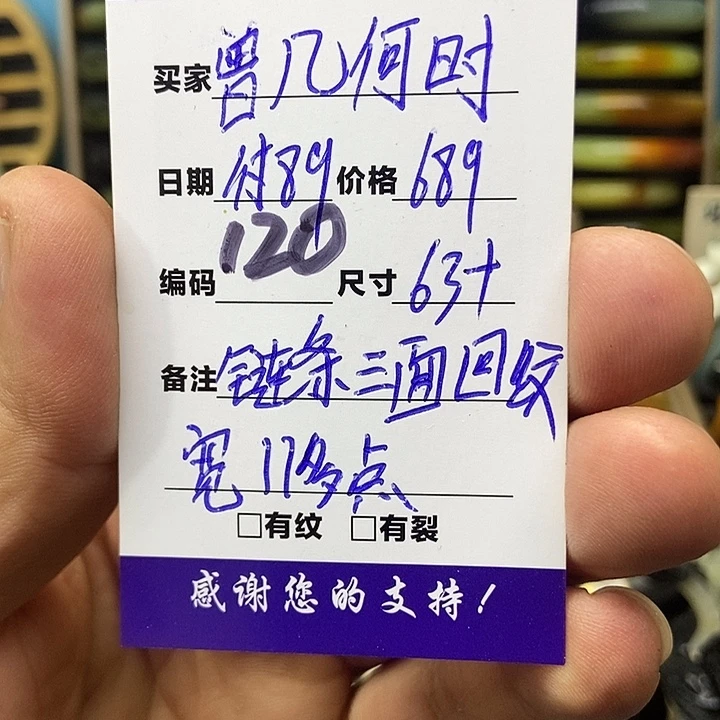 买家 曾几何时
日期 付89 价格 689
编码 120 尺寸 63+
备注 链条三面回纹
宽11多点
□有纹 □有裂
感谢您的支持!